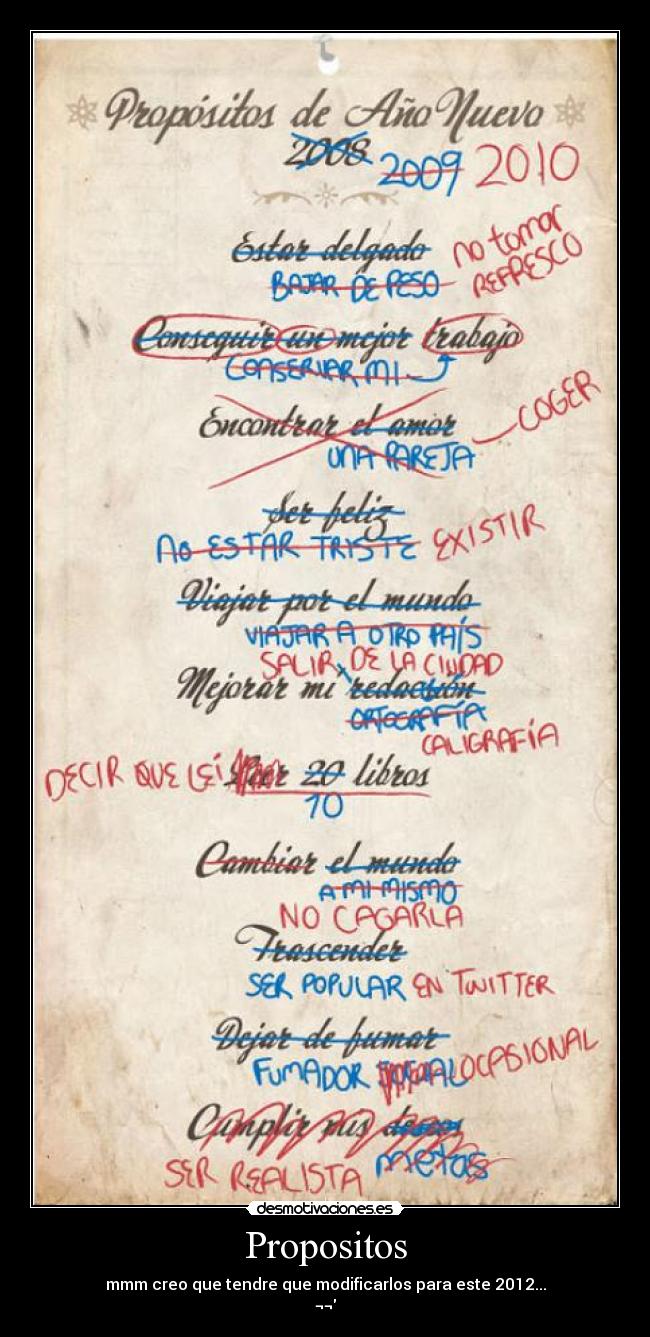 Propósitos de Año Nuevo
2008 2009 2010
Estar delgado
BAJAR DE PESO
no tomar
REFRESCO
Conseguir un mejor trabajo
CONSERVAR MI
Encontrar el amor
COGER
UNA PAREJA
Ser feliz
NO ESTAR TRISTE EXISTIR
Viajar por el mundo
VIAJAR A OTRO PAÍS
SALIR DE LA CIUDAD
Mejorar mi redacción
ORTOGRAFÍA
CALIGRAFÍA
DECIR QUE LEÍ Leer 20 libros
10
Cambiar el mundo
A MI MISMO
NO CAGARLA
Trascender
SER POPULAR EN TWITTER
Dejar de fumar
FUMADOR OCASIONAL
Cumplir mis deseos
metas
SER REALISTA
desmotivaciones.es
Propositos
mmm creo que tendre que modificarlos para este 2012...
¬¬'